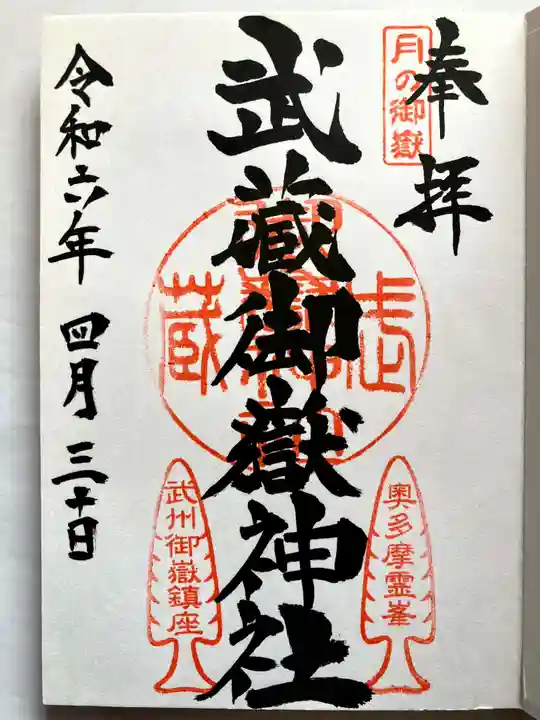 奉拝
月の御嶽
武蔵御嶽神社
武
蔵
奥多摩霊峯
武州御嶽鎮座
令和六年 四月三十日